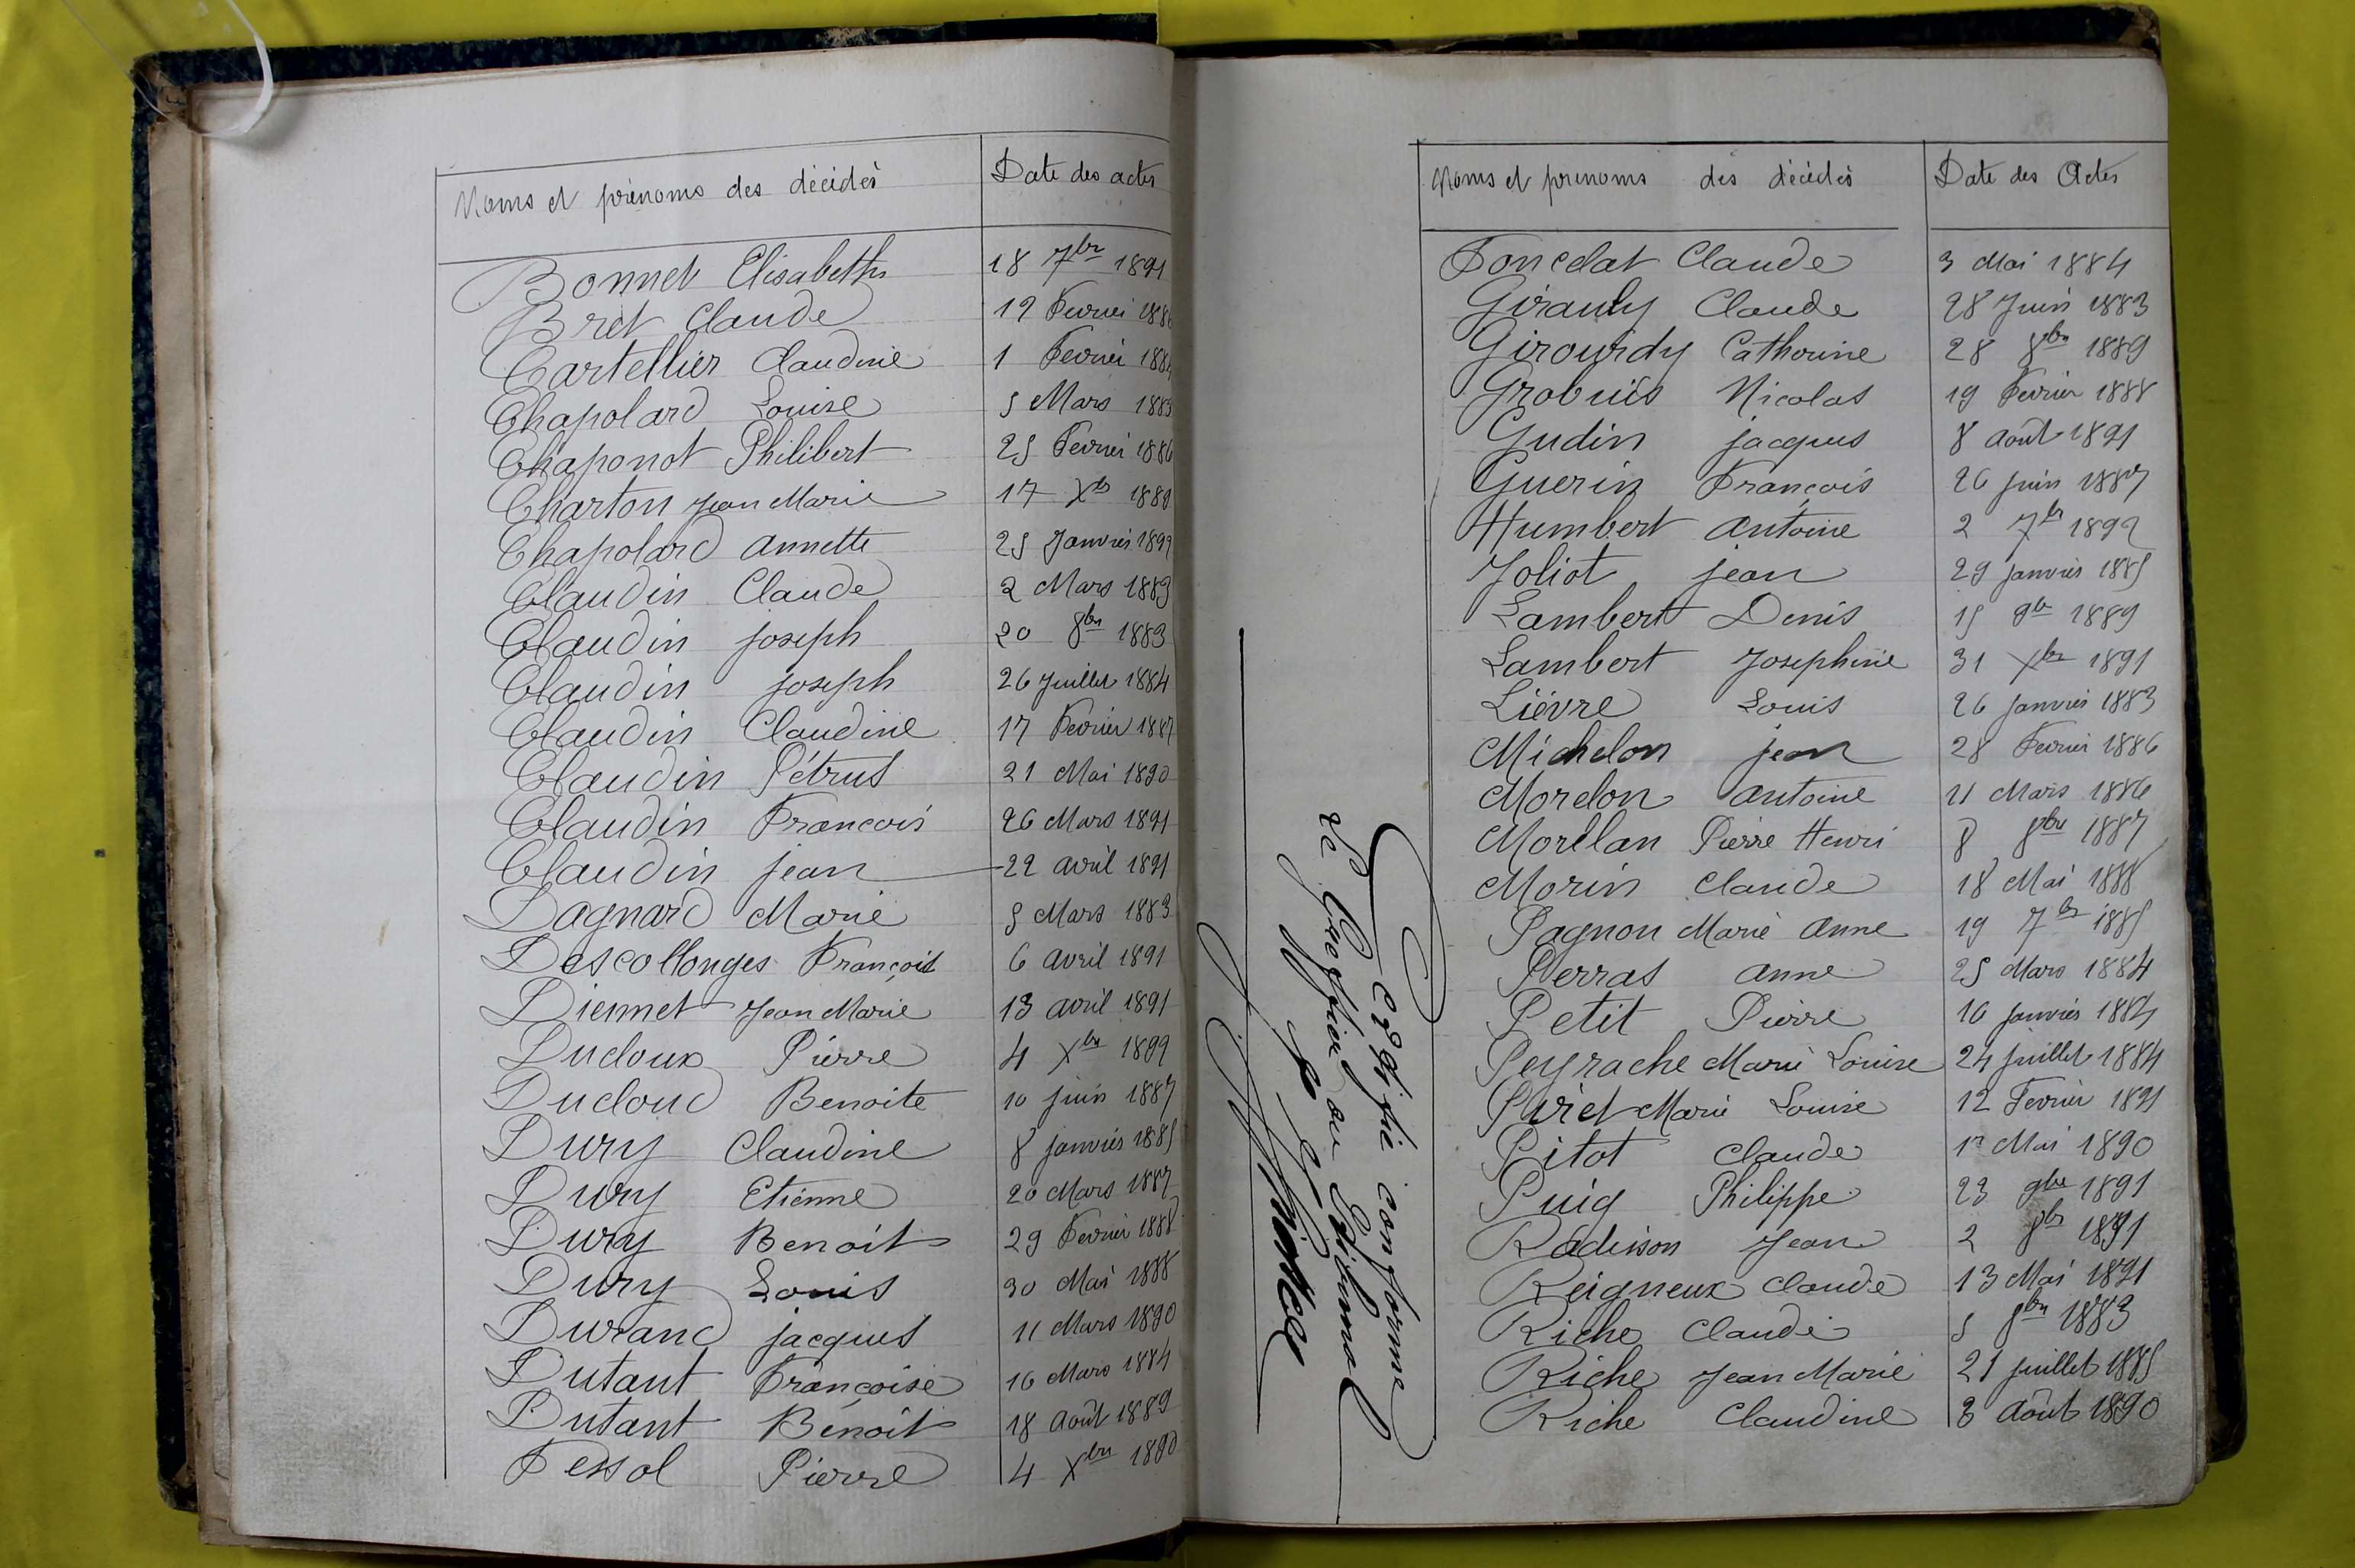 Noms et prénoms des décédés Date des actes
Bonnet Elisabeth 18 7bre 1891
Bret Claude 12 Fevrier
Cartellier Claudine 1 Fevrier
Chapolard Louise 5 Mars 1883
Chaponot Philibert 25 Fevrier 1886
Charton Jean Marie 17 Xbre
Chapolard Annette 25 Janvier 1892
Claudin Claude 2 Mars 1883
Claudin Joseph 20 8bre 1883
Claudin Joseph 26 Juillet 1884
Claudin Claudine 17 Fevrier 1887
Claudin Pétrus 21 Mai 1890
Claudin Francois 26 Mars 1891
Claudin Jean 22 avril 1891
Dagnard Marie 5 Mars 1883
Descollonges François 6 avril 1891
Diennet Jean Marie 13 avril 1891
Ducloux Pierre 4 Xbre
Ducloud Benoite 10 juin 1887
Dury Claudine 8 janvier 1885
Dury Etienne 20 Mars 1887
Dury Benoit 29 Fevrier 1888
Dury Louis 30 Mai 1888
Durand jacques 11 Mars 1890
Dutant Françoise 16 Mars 1884
Dutant Bénoit 18 Août 1889
Fessol Pierre 4 Xbre 1890
Certifié conforme
le Greffier du Tribunal
Noms et prenoms des décédés Date des Actes
Foncelat Claude 3 Mai 1884
Girauly Claude 28 Juin 1883
Girourdy Catherine 28 8bre 1889
Nicolas 19 Fevrier 1888
Gudin jacques 8 août 1891
Guerin François 26 juin 1887
Humbert Antoine 2 7bre 1892
Joliot jean 29 janvier 1885
Lambert Denis 15 9bre 1889
Lambert Josephine 31 Xbre 1891
Lièvre Louis 26 janvier 1883
Michelon jean 28 Fevrier 1886
Morelon Antoine 11 Mars 1886
Morellan Pierre Henri 8 8bre 1887
Morin Claude 18 Mai 1888
Pagnon Marie Anne 19 7bre 1885
Perras Anne 25 Mars 1884
Petit Pierre 16 janvier
Peyrache Marie Louise 24 juillet 1884
Marie Louise 12 Fevrier 1891
Pitot Claude 1er Mai 1890
Puig Philippe 23 9bre 1891
Radisson Jean 2 8bre 1891
Reigneux Claude 13 Mai 1891
Riche Claude 5 8bre 1883
Riche Jean Marie 21 juillet 1885
Riche Claudine 3 Août 1890